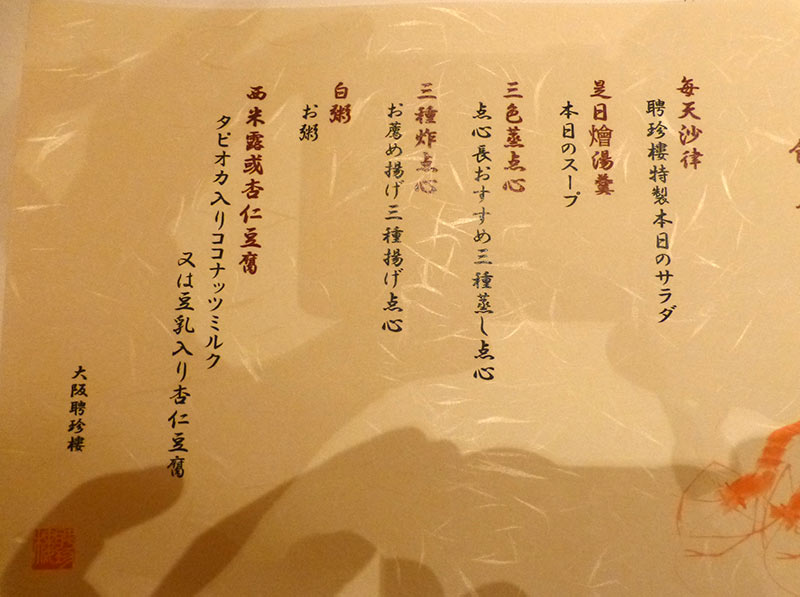 毎天沙律
聘珍樓特製本日のサラダ
是日燴湯羹
本日のスープ
三色蒸点心
点心長おすすめ三種蒸し点心
三種炸点心
お薦め揚げ三種揚げ点心
白粥
お粥
西米露或杏仁豆腐
タピオカ入りココナッツミルク
又は豆乳入り杏仁豆腐
大阪聘珍樓